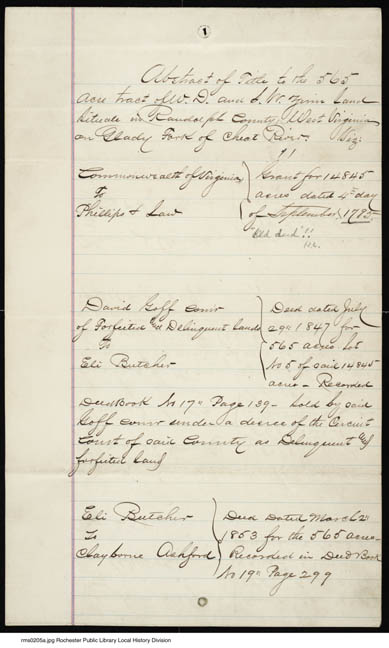 1
Abstract of Title to the 565
acre tract of W. D. and S. W. Zinn Land
Situate in Randolph County West Virginia
on Glady Fork of Cheat River. Viz:
Commonwealth of Virginia } Grant for 14845
To acres dated 4th day
Phillips & Law of September 1795.
"Old deed"!!
David Goff comr Deed dated July
of Forfeited & Delinquent lands 29" 1847 for
To 565 acres Lot
Eli Butcher No 5 of said 14845
acres - Recorded
Deed Book No 17" Page 139 - sold by said
Goff comr under a decree of the Circuit
Court of said County as Delinquent &
forfeited land
Eli Butcher Deed Dated March 2"
To 1853 for the 565 acres -
Clayborne Ashford Recorded in Deed Book
No 19" Page 299
rms0205a.jpg Rochester Public Library Local History Division